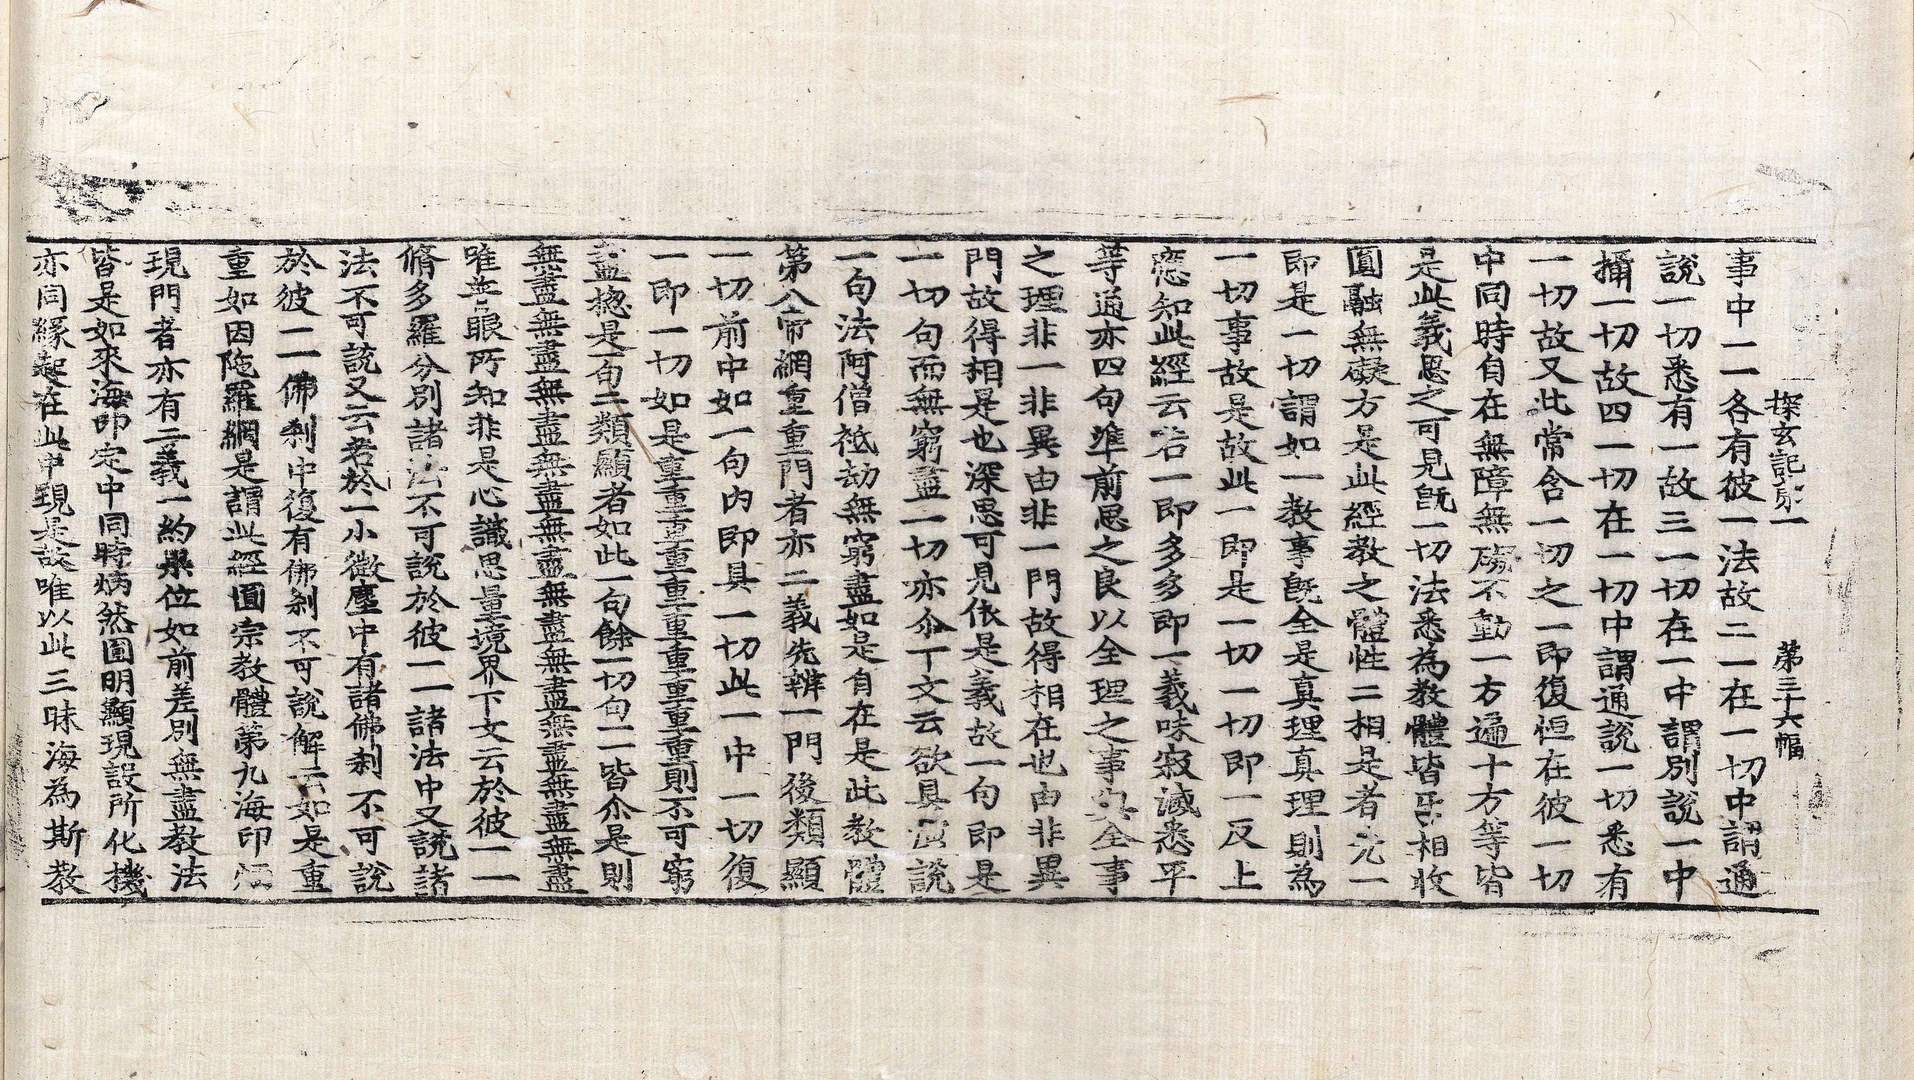 探玄記第一 第三十六幅
事中一一各有彼一法故二一在一切中謂通
說一切悉有一故三一切在一中謂別說一中
攝一切故四一切在一切中謂通說一切悉有
一切故又此常含一切之一即復恒在彼一切
中同時自在無障無礙不動一方遍十方等皆
是此義思之可見旣一切法悉為教體皆互相收
圓融無礙方是此經教之體性二相是者元一
即是一切謂如一教事旣全是真理真理則為
一切事故是故此一即是一切一切即一反上
應知此經云若一即多多即一義味寂滅悉平
等通亦四句準前思之良以全理之事與全事
之理非一非異由非一門故得相在也由非異
門故得相是也深思可見依是義故一句即是
一切句而無窮盡一切亦尒下文云欲具演說
一句法阿僧祇劫無窮盡如是自在是此教體
第八帝網重重門者亦二義先辨一門後類顯
一切前中如一句內即具一切此一中一切復
一即一切如是重重重重重重重重重重則不可窮
盡揔是一句二類顯者如此一句餘一切句一一皆尒是則
無盡無盡無盡無盡無盡無盡無盡無盡無盡無盡
唯普眼所知非是心識思量境界下文云於彼一一
脩多羅分別諸法不可說於彼一一諸法中又說諸
法不可說又云若於一小微塵中有諸佛剎不可說
於彼一一佛剎中復有佛剎不可說解云如是重
重如因陁羅網是謂此經圓宗教體第九海印炳
現門者亦有二義一約果位如前差別無盡教法
皆是如來海印定中同時炳然圓明顯現設所化機
亦同緣起在此中現是故唯以此三昧海為斯教